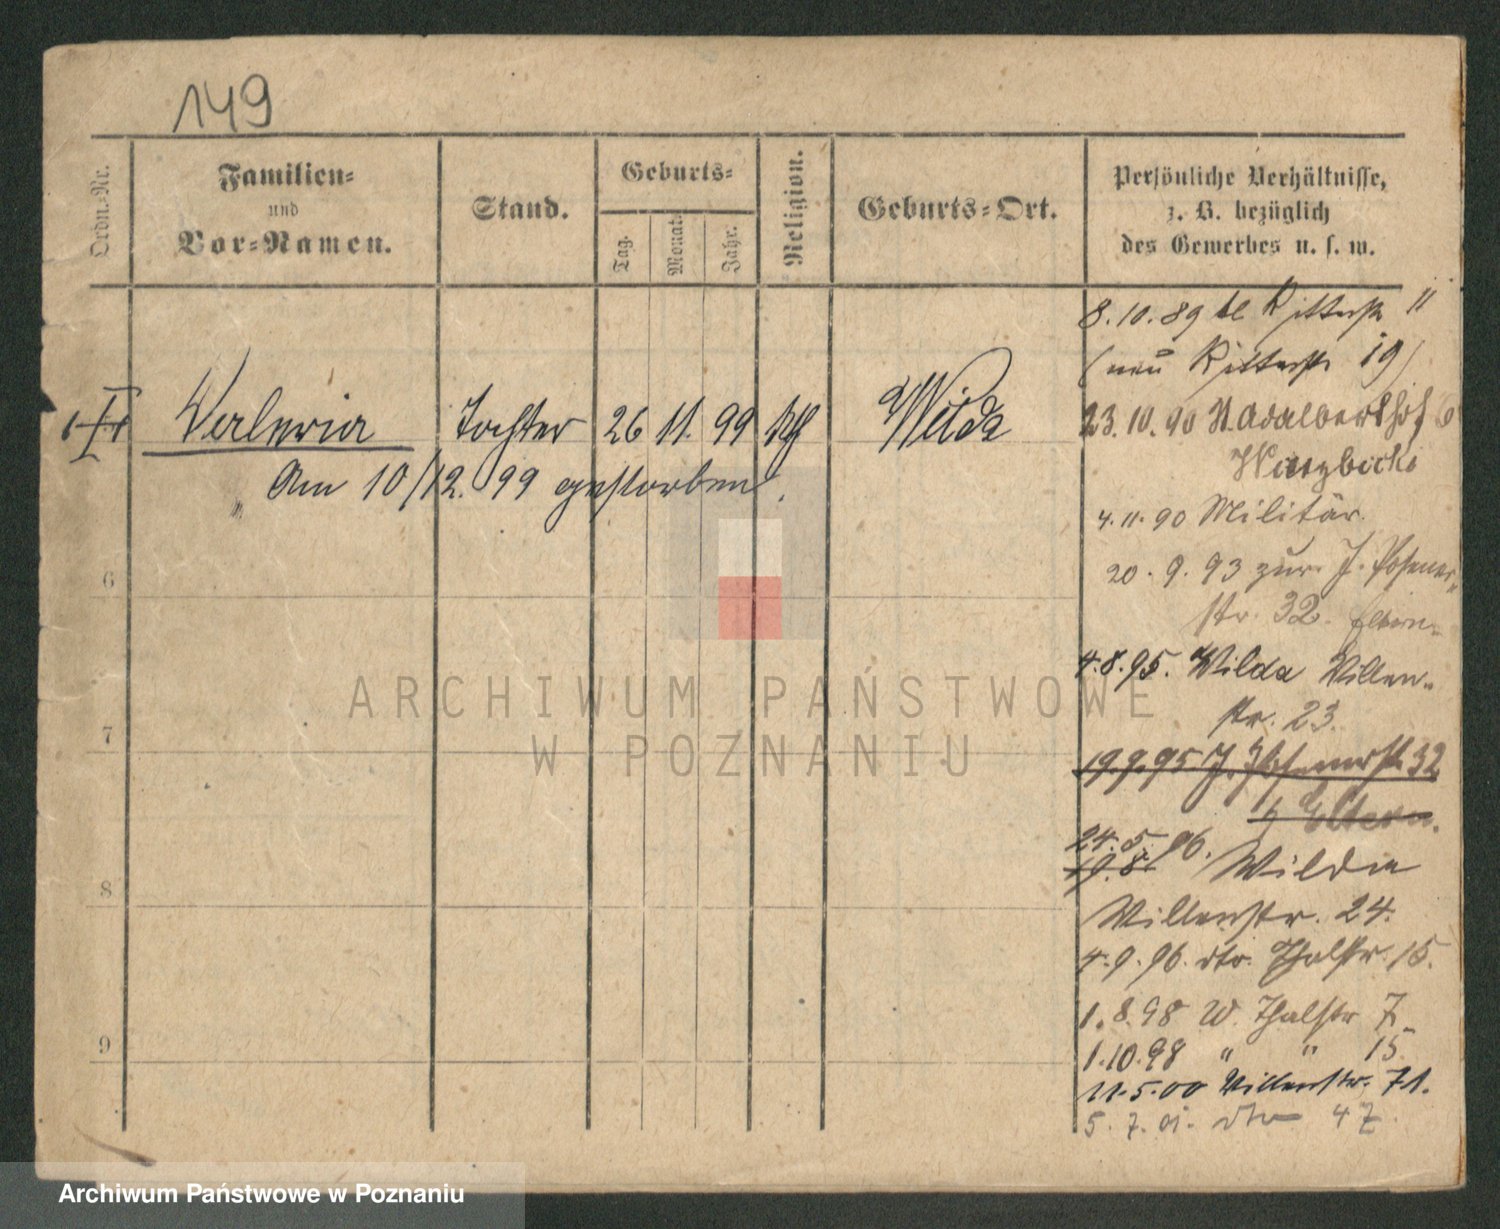 149
Ordn.-Nr.
Familien-
und
Vor-Namen.
Stand.
Geburts-
Tag.
Monat.
Jahr.
Religion.
Geburts-Ort.
Persönliche Verhältnisse,
z. B. bezüglich
des Gewerbes u. s. w.
8.10.89 Ritterstr 11
(neu Ritterstr 19)
Valeria Tochter 26 11. 99 kth Wilda
23.10.90 St. Adalbertshof 6
Am 10/12. 99 gestorben.
4.11.90 Militär.
6
20.9.93 zur J. Posener-
str. 32. Eltern.
4.8.95. Wilda Villen-
str. 23.
7
19.9.95 J. Posenerstr 32
b/ Eltern.
24.5.96.
19.8. Wilda
8
Villenstr. 24.
4.9.96. dto. Thalstr. 15.
1.8.98 W. Thalstr 7.
9
1.10.98 " " 15
11.5.00 Villenstr. 71.
5.7.01. dto 47
ARCHIWUM PAŃSTWOWE
W POZNANIU
Archiwum Państwowe w Poznaniu